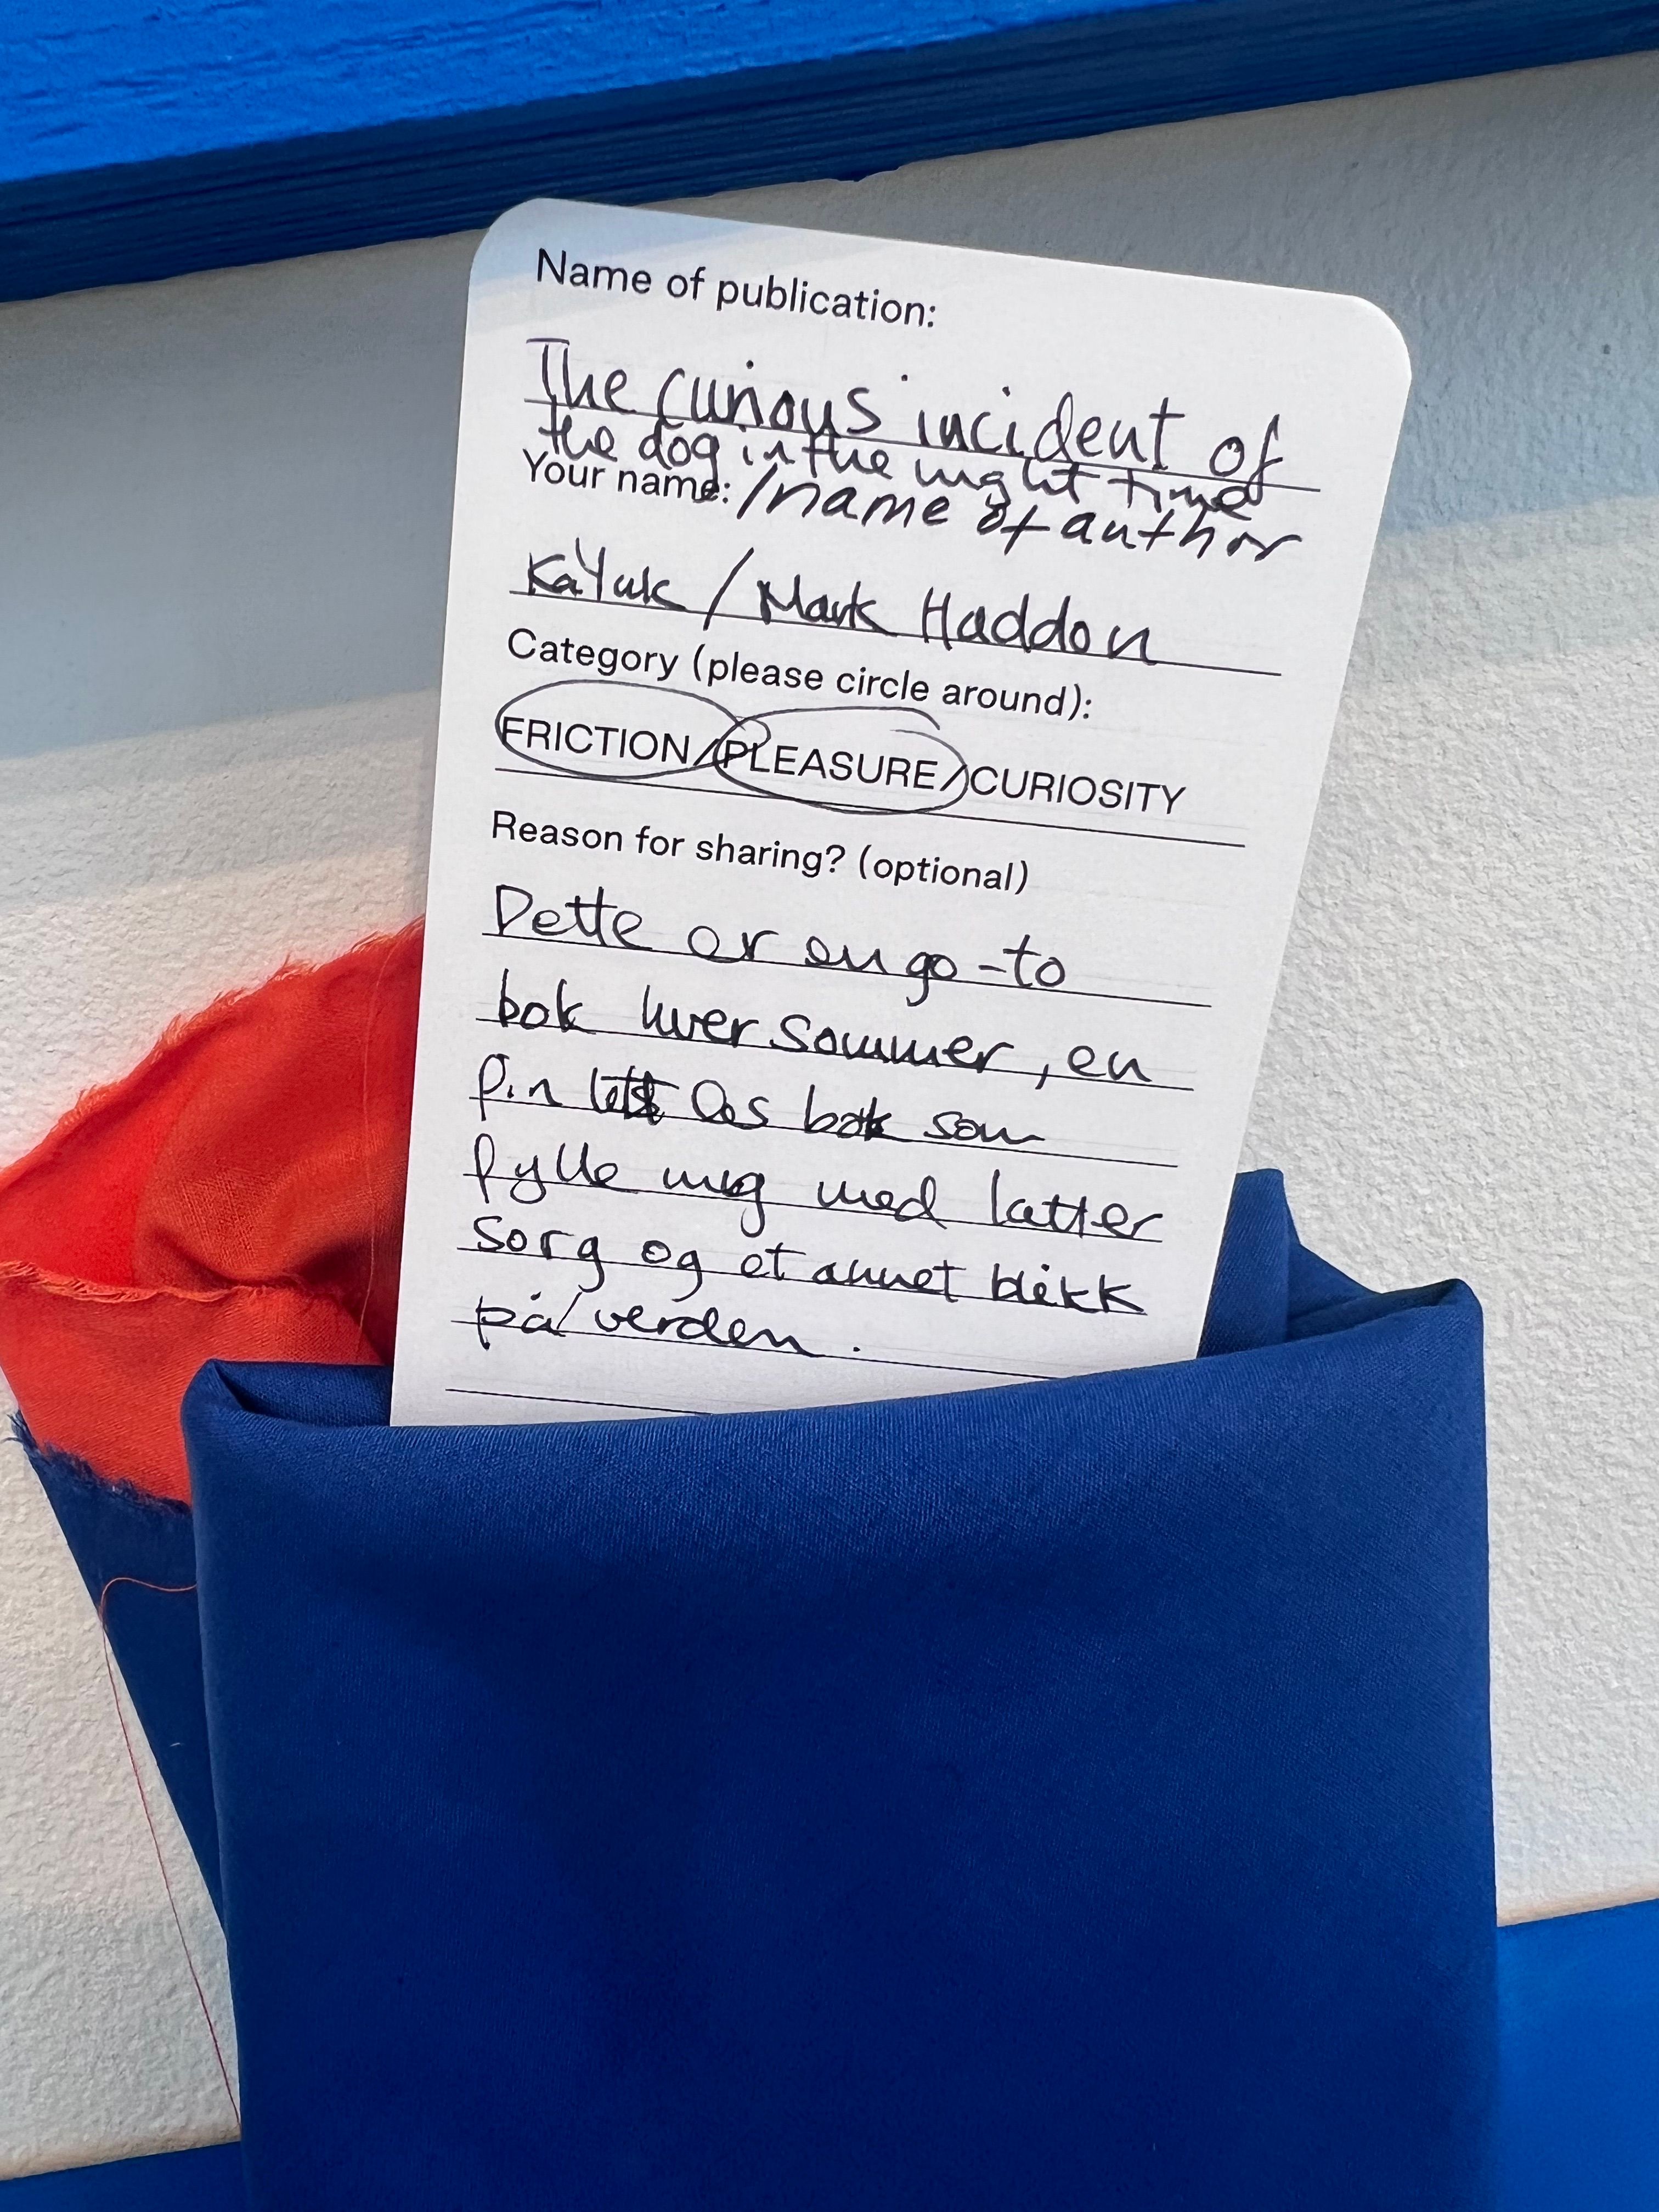 Name of publication:
The curious incident of
the dog in the night time
Your name: /name of author
KaYuk / Mark Haddon
Category (please circle around):
FRICTION/PLEASURE/CURIOSITY
Reason for sharing? (optional)
Dette er en go-to
bok hver sommer, en
fin lett les bok som
fylle meg med latter
sorg og et annet blikk
på verden.